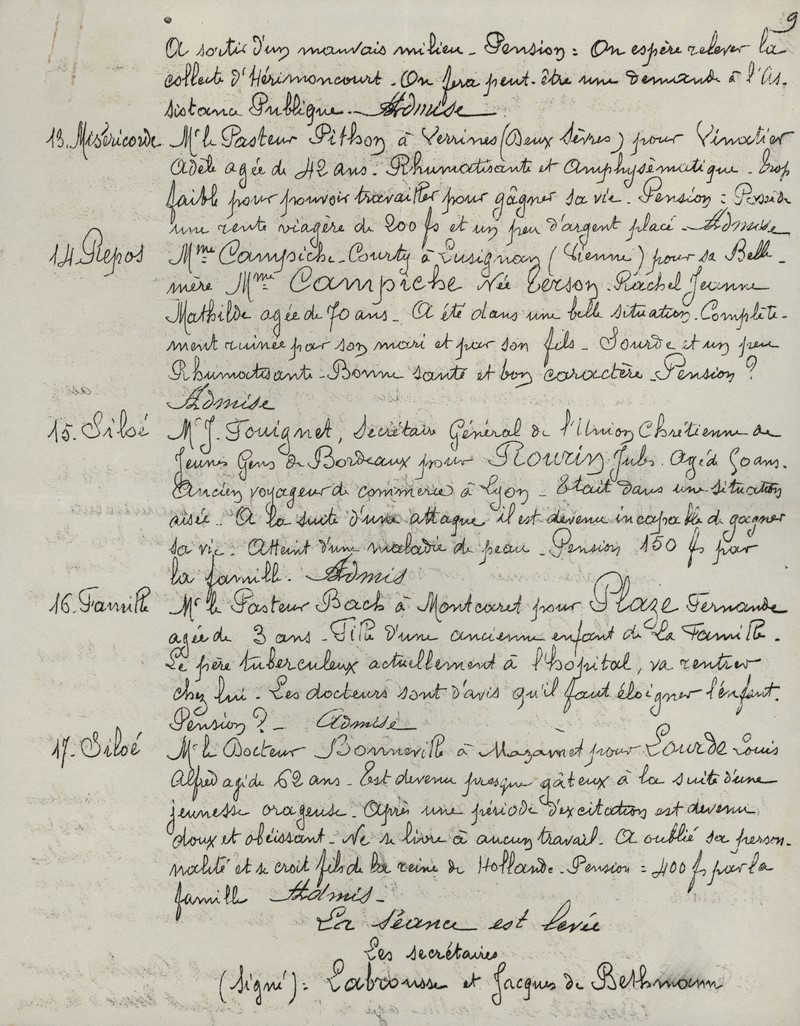 9
A sortir d'un mauvais milieu - Pension = On espère relever la
collecte d'Hérimoncourt - On fera peut-être une demande à l'As-
sistance Publique - Admise
13. Miséricorde Mr le Pasteur Pithon à Verrines (Deux Sèvres) pour Vinatier
Adèle agée de 42 ans - Rhumatisante et Amphysèmatique - Trop
faible pour pouvoir travailler pour gâgner sa vie. Pension : Possède
une rente viagère de 200 fs et un peu d'argent placé - Admise
14 Repos Mme Campiche-Courty à Lusignan (Vienne) pour sa Belle-
mère Mme Campiche Née Terson - Rachel Jeanne
Mathilde agée de 70 ans - A été dans une belle situation. Complète-
ment ruinée par son mari et par son fils - Sourde et un peu
Rhumatisante - Bonne santé et bon caractère - Pension ?
Admise
15. Siloé Mr J. Touignet, Secrétaire Général de l'Union Chrétienne de
Jeunes Gens de Bordeaux pour Rourin Jules. Agé de 50 ans.
Ancien voyageur de commerce à Lyon - Etait dans une situation
aisée - A la suite d'une attaque il est devenu incapable de gagner
sa vie - Atteint d'une maladie de peau - Pension 150 fs par
la famille. Admis
16. Famille Mr le Pasteur Bach à Montcaret pour Plaze Fernande
agée de 3 ans - Fille d'une ancienne enfant de La Famille -
Le père tuberculeux actuellement à l'hopital, va rentrer
chez lui - Les docteurs sont d'avis qu'il faut éloigner l'enfant.
Pension ? - Admise
17. Siloé Mr le Docteur Bonneville à Mazamet pour Lourde Louis
Alfred agé de 62 ans - Est devenu presque gâteux à la suite d'une
jeunesse orageuse - Après une période d'excitation est devenu
doux et obéissant - Ne se livre à aucun travail - A oublié sa person-
nalité et se croit fils de la reine de Hollande - Pension = 400 fs par la
famille Admis -
La séance est levée
Les secrétaires
(Signé) : Labrousse et Jacques de Bethmann